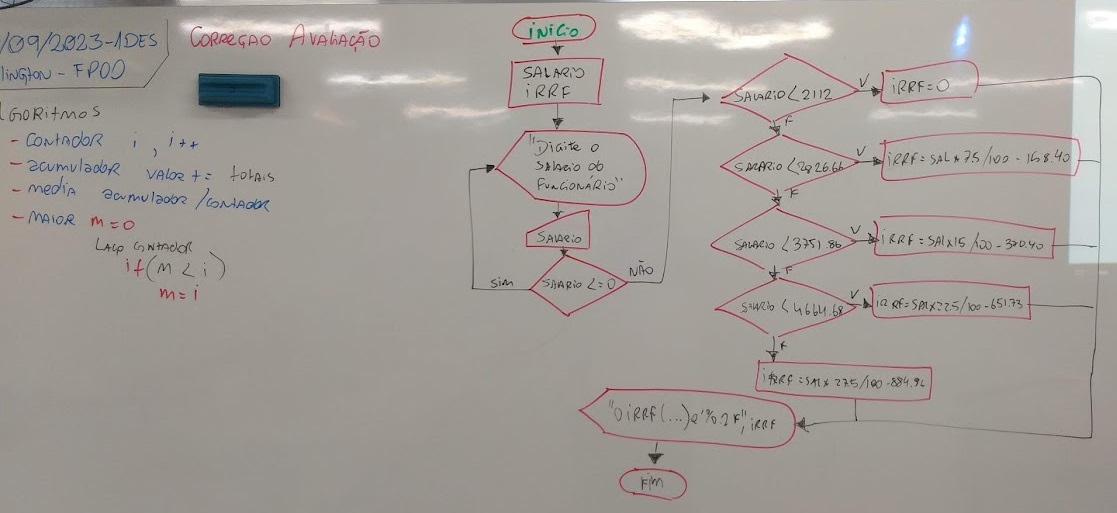 /09/2023-1DES
lington - FPOO
CORREÇAO AVALIAÇÃO
LGORITMOS
- CONTADOR i, i++
- acumulador valor += totais
- media acumulador/contador
- MAIOR m=0
LAÇO CONTADOR
if(m < i)
m=i
INICIO
SALARIO
IRRF
"Digite o
SALARIO do
FUNCIONÁRIO"
SALARIO
SALARIO <=0
sim
NÃO
SALARIO < 2112
V
IRRF=0
F
SALARIO <2826.66
V
IRRF = SAL x 7.5/100 - 158.40
F
SALARIO < 3751.86
V
IRRF = SAL x 15/100 - 370.40
F
SALARIO < 4664.68
V
IRRF = SAL x 22.5/100 - 651.73
F
IRRF = SAL x 27.5/100 - 884.96
"O IRRF (...) e '%.2F", IRRF
Fim